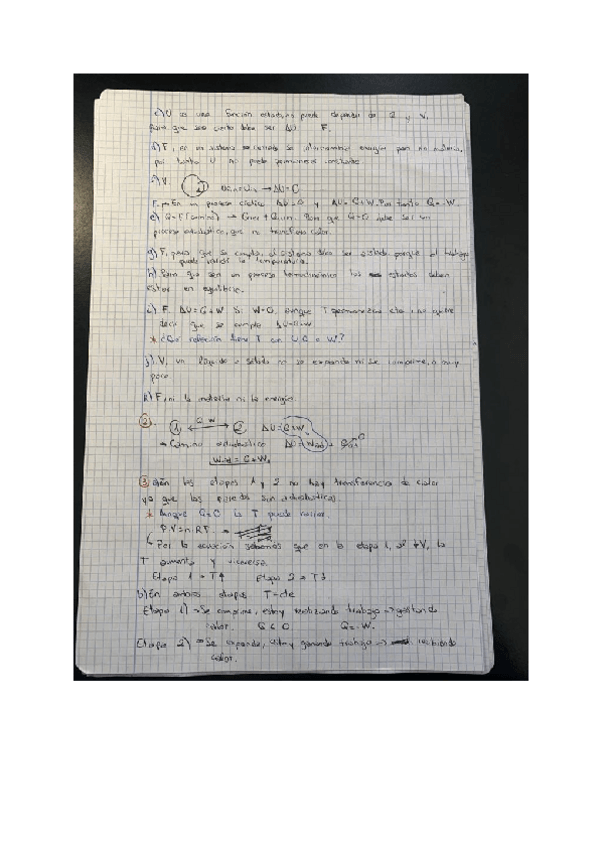 c) U es una función estado, no puede depender de Q y W,
para que sea cierto debe ser ΔU F.
d) F, en un sistema cerrado se intercambia energía pero no materia,
por tanto U no puede permanecer constante
V,
→ ΔU = 0
F, En un proceso cíclico ΔU = 0 y ΔU = Q + W. Por tanto Q = -W
e) Q = F (camino) → Para que Q = 0 debe ser un
proceso adiabático, que no transfiera calor.
g) F, para que se cumpla, el sistema debe ser aislado porque el trabajo
puede variar la temperatura.
h) Para que sea un proceso termodinámico los estados deben
estar en equilibrio.
i) F. ΔU = Q + W Si W = 0, aunque T permanezca cte no quiere
decir que se cumpla ΔU = Q + W
* ¿Qué relación tiene T con U Q o W?
j) V, un líquido o sólido no se expande ni se comprime, o muy
poco
k) F, ni la materia ni la energía.
2. 1 Q W 2 ΔU = Q + W
→ Camino adiabático ΔU = Wad + Qad 0
Wad = Q + W
3. a) En las etapas 1 y 2 no hay transferencia de calor
ya que las paredes son adiabáticas.
* Aunque Q = 0 la T puede variar.
P·V = n·R·T.
Por la ecuación sabemos que en la etapa 1, si ↓V, la
T aumenta y viceversa.
Etapa 1 = T↑ Etapa 2 = T↓
b) En ambas etapas T = cte
Etapa 1) → Se comprime, estoy realizando trabajo →
calor. Q < 0 Q = -W.
Etapa 2) → Se expande, estoy ganando trabajo → recibiendo
calor.